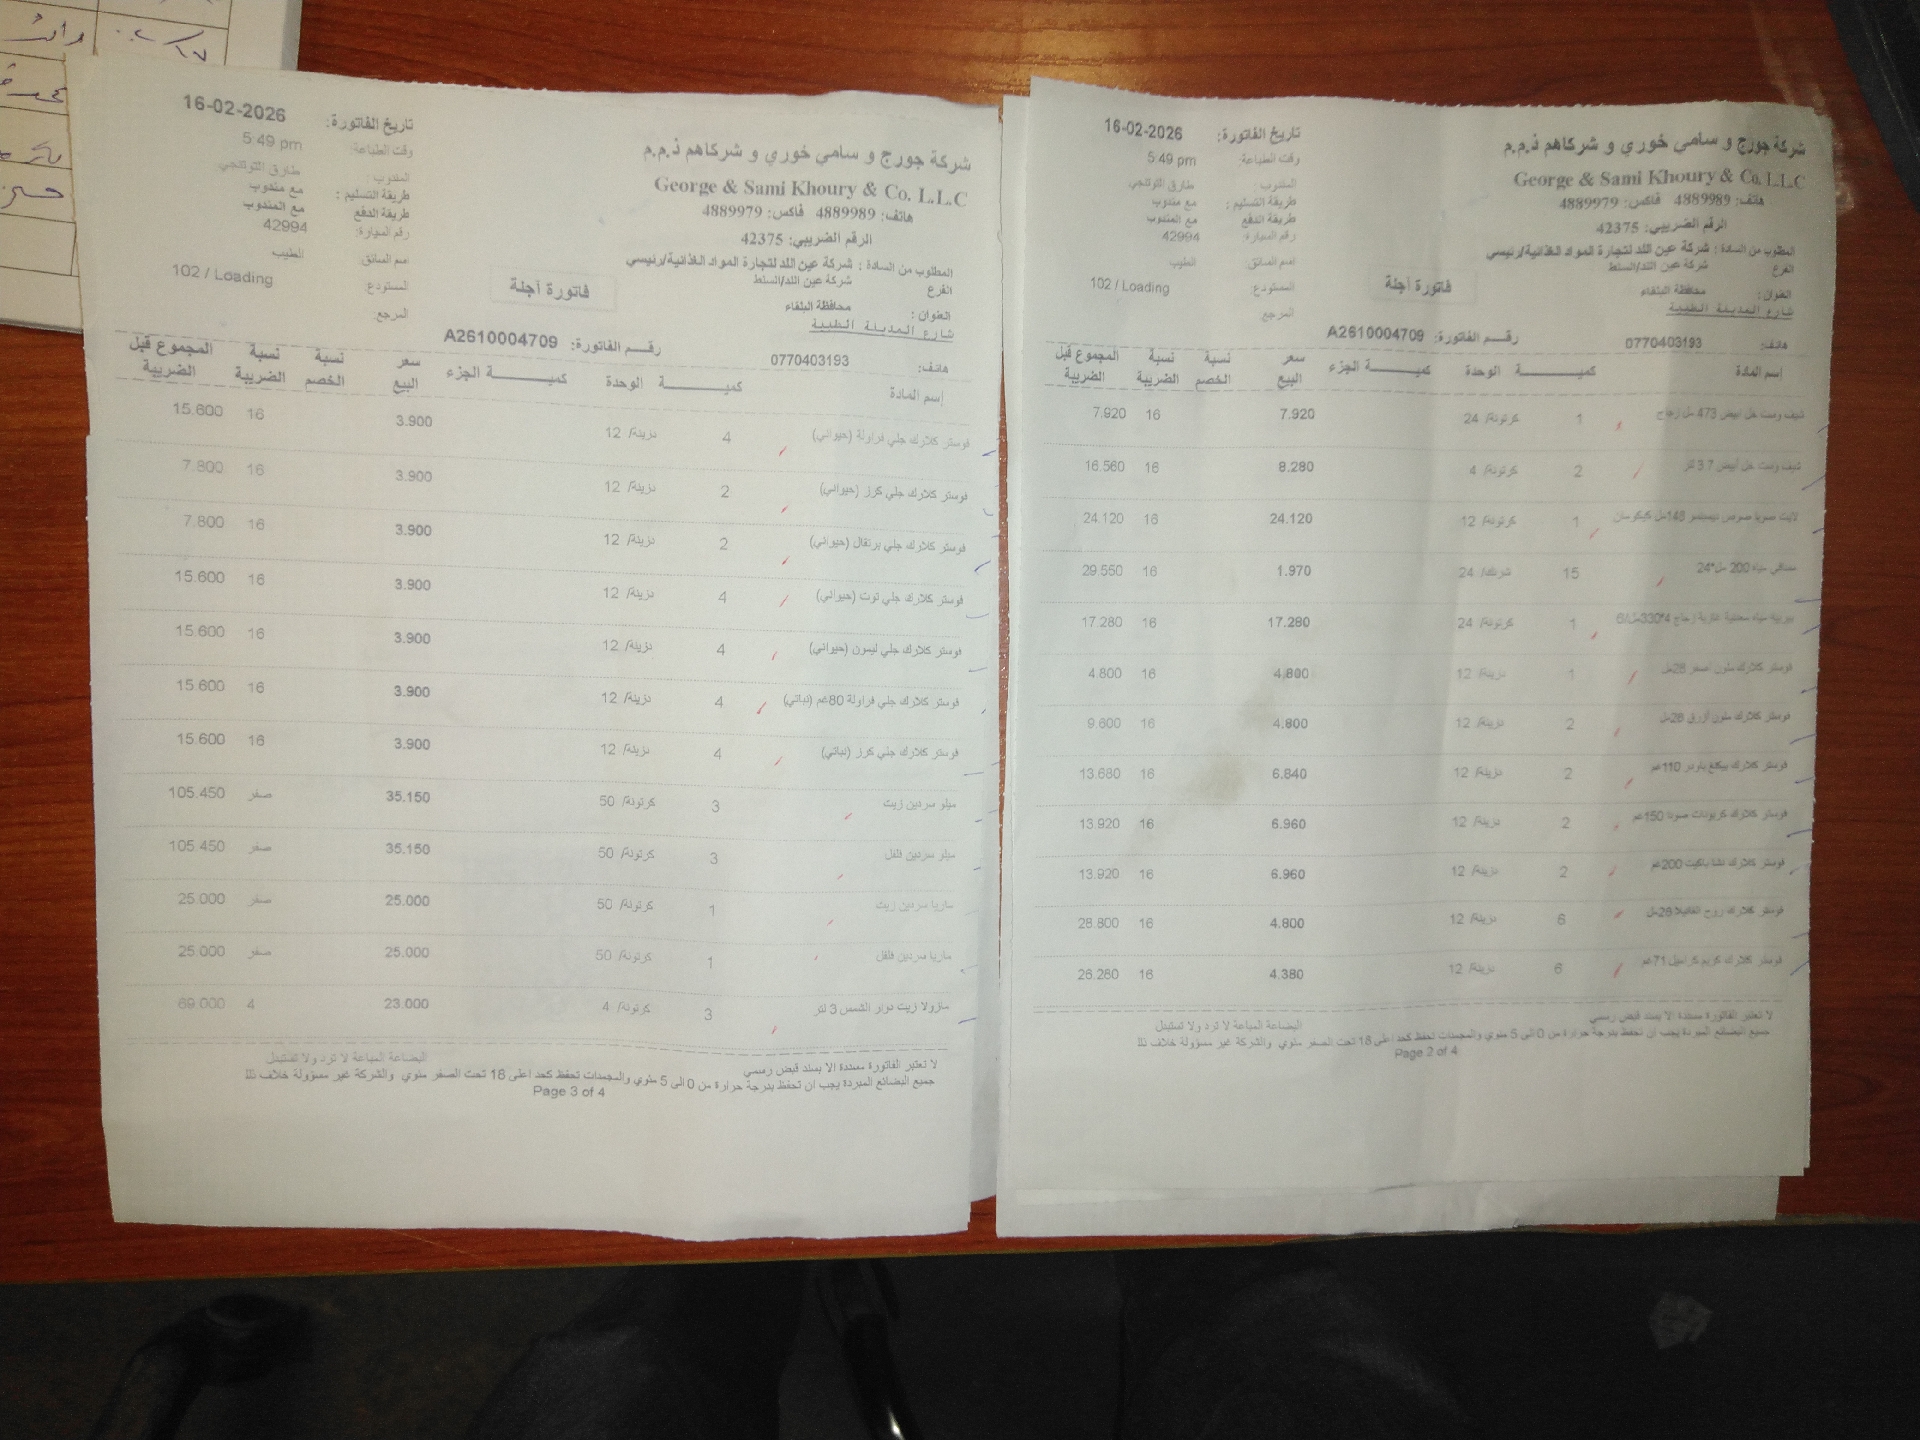 شركة جورج و سامي خوري و شركاهم ذ.م.م
George & Sami Khoury & Co. L.L.C
هاتف: 4889989 فاكس: 4889979
الرقم الضريبي: 42375
المطلوب من السادة : شركة عين اللد لتجارة المواد الغذائية/رئيسي
الفرع شركة عين اللد/السلط
العنوان : محافظة البلقاء
شارع المدينة الطبية
هاتف: 0770403193
تاريخ الفاتورة: 16-02-2026
وقت الطباعة: 5:49 pm
المندوب :
طريقة التسليم : مع مندوب
طريقة الدفع مع المندوب
رقم السيارة: 42994
اسم السائق: الطيب
المستودع: 102 / Loading
المرجع:
فاتورة آجلة
رقم الفاتورة: A2610004709
إسم المادة كمية الوحدة كمية الجزء سعر البيع نسبة الخصم نسبة الضريبة المجموع قبل الضريبة
شيف وست خل ابيض 473 مل زجاج 1 كرتونة/ 24 7.920 16 7.920
شيف وست خل أبيض 3.7 لتر 2 كرتونة/ 4 8.280 16 16.560
لايت صويا صوص 148مل كيكومان 1 كرتونة/ 12 24.120 16 24.120
مياه 200 مل*24 15 شرنك/ 24 1.970 16 29.550
بيريه مياه معدنية غازية زجاج 330*4مل/6 1 كرتونة/ 24 17.280 16 17.280
فوستر كلارك ملون اصفر 28مل 1 دزينة/ 12 4.800 16 4.800
فوستر كلارك ملون أزرق 28مل 2 دزينة/ 12 4.800 16 9.600
فوستر كلارك بيكنغ باودر 110غم 2 دزينة/ 12 6.840 16 13.680
فوستر كلارك كربونات صودا 150غم 2 دزينة/ 12 6.960 16 13.920
فوستر كلارك نشا باكيت 200غم 2 دزينة/ 12 6.960 16 13.920
فوستر كلارك روح الفانيلا 28مل 6 دزينة/ 12 4.800 16 28.800
فوستر كلارك كريم كراميل 71غم 6 دزينة/ 12 4.380 16 26.280
لا تعتبر الفاتورة مسددة الا بسند قبض رسمي البضاعة المباعة لا ترد ولا تستبدل
جميع البضائع المبردة يجب ان تحفظ بدرجة حرارة من 0 الى 5 مئوي والمجمدات تحفظ كحد اعلى 18 تحت الصفر مئوي والشركة غير مسؤولة خلاف ذلك
Page 2 of 4
شركة جورج و سامي خوري و شركاهم ذ.م.م
George & Sami Khoury & Co. L.L.C
هاتف: 4889989 فاكس: 4889979
الرقم الضريبي: 42375
المطلوب من السادة : شركة عين اللد لتجارة المواد الغذائية/رئيسي
الفرع شركة عين اللد/السلط
العنوان : محافظة البلقاء
شارع المدينة الطبية
هاتف: 0770403193
تاريخ الفاتورة: 16-02-2026
وقت الطباعة: 5:49 pm
المندوب :
طريقة التسليم : مع مندوب
طريقة الدفع مع المندوب
رقم السيارة: 42994
اسم السائق: الطيب
المستودع: 102 / Loading
المرجع:
فاتورة آجلة
رقم الفاتورة: A2610004709
إسم المادة كمية الوحدة كمية الجزء سعر البيع نسبة الخصم نسبة الضريبة المجموع قبل الضريبة
فوستر كلارك جلي فراولة (حيواني) 4 دزينة/ 12 3.900 16 15.600
فوستر كلارك جلي كرز (حيواني) 2 دزينة/ 12 3.900 16 7.800
فوستر كلارك جلي برتقال (حيواني) 2 دزينة/ 12 3.900 16 7.800
فوستر كلارك جلي توت (حيواني) 4 دزينة/ 12 3.900 16 15.600
فوستر كلارك جلي ليمون (حيواني) 4 دزينة/ 12 3.900 16 15.600
فوستر كلارك جلي فراولة 80غم (نباتي) 4 دزينة/ 12 3.900 16 15.600
فوستر كلارك جلي كرز (نباتي) 4 دزينة/ 12 3.900 16 15.600
ميلو سردين زيت 3 كرتونة/ 50 35.150 صفر 105.450
ميلو سردين فلفل 3 كرتونة/ 50 35.150 صفر 105.450
ماريا سردين زيت 1 كرتونة/ 50 25.000 صفر 25.000
ماريا سردين فلفل 1 كرتونة/ 50 25.000 صفر 25.000
مازولا زيت دوار الشمس 3 لتر 3 كرتونة/ 4 23.000 4 69.000
لا تعتبر الفاتورة مسددة الا بسند قبض رسمي البضاعة المباعة لا ترد ولا تستبدل
جميع البضائع المبردة يجب ان تحفظ بدرجة حرارة من 0 الى 5 مئوي والمجمدات تحفظ كحد اعلى 18 تحت الصفر مئوي والشركة غير مسؤولة خلاف ذلك
Page 3 of 4